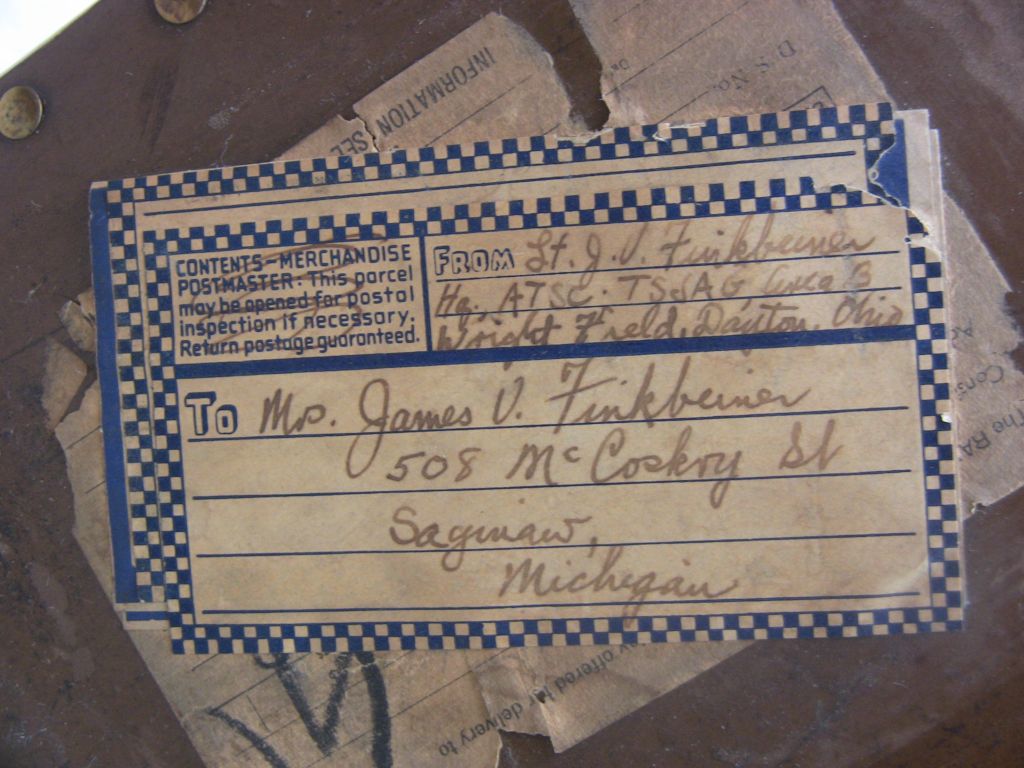 INFORMATION SEL
D.S. No.
CONTENTS-MERCHANDISE
POSTMASTER: This parcel
may be opened for postal
inspection if necessary.
Return postage guaranteed.
FROM Lt. J. V. Finkbeiner
Hq. ATSC. TSJAG, Area B
Wright Field, Dayton, Ohio
To Mrs. James V. Finkbeiner
508 McCoskry St
Saginaw,
Michigan
The RA
offered for delivery to